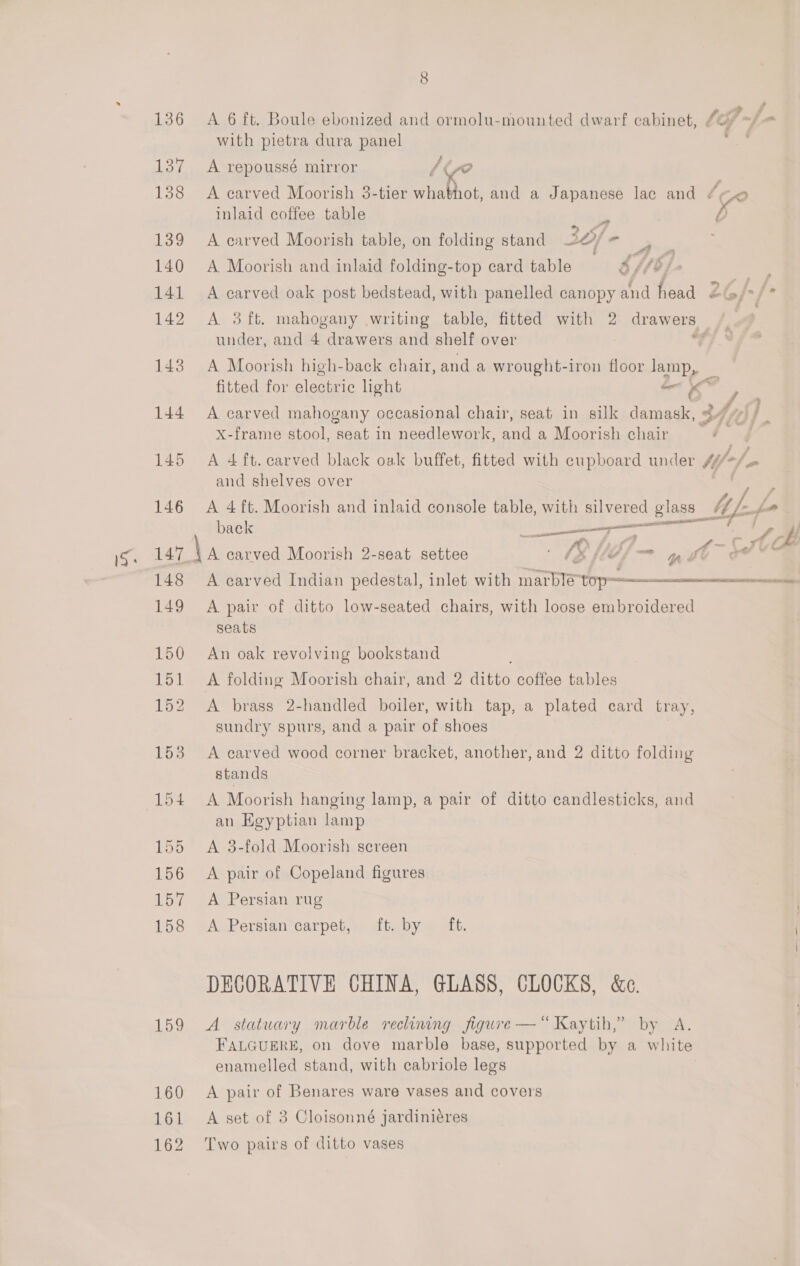 8
136 A 6 ft. Boule ebonized and ormolu-mounted dwarf cabinet,
with pietra dura panel
137 A repoussé mirror
138 A carved Moorish 3-tier whatnot, and a Japanese lac and
inlaid coffee table
139 A carved Moorish table, on folding stand
140 A Moorish and inlaid folding-top card table
141 A carved oak post bedstead, with panelled canopy and head
142 A 3 ft. mahogany writing table, fitted with 2 drawers
under, and 4 drawers and shelf over
143 A Moorish high-back chair, and a wrought-iron floor lamp,
fitted for electric light
144 A carved mahogany occasional chair, seat in silk damask,
X-frame stool, seat in needlework, and a Moorish chair
145 A 4 ft. carved black oak buffet, fitted with cupboard under
and shelves over
146 A 4 ft. Moorish and inlaid console table, with silvered glass
back
147 A carved Moorish 2-seat settee
148 A carved Indian pedestal, inlet with marble top
149 A pair of ditto low-seated chairs, with loose embroidered
seats
150 An oak revolving bookstand
151 A folding Moorish chair, and 2 ditto coffee tables
152 A brass 2-handled boiler, with tap, a plated card tray,
sundry spurs, and a pair of shoes
153 A carved wood corner bracket, another, and 2 ditto folding
stands
154 A Moorish hanging lamp, a pair of ditto candlesticks, and
an Egyptian lamp
155 A 3-fold Moorish screen
156 A pair of Copeland figures
157 A Persian rug
158 A Persian carpet, ft. by ft.
DECORATIVE CHINA, GLASS, CLOCKS, &c.
159 A statuary marble reclining figure—“Kaytih,” by A.
FALGUERE, on dove marble base, supported by a white
enamelled stand, with cabriole legs
160 A pair of Benares ware vases and covers
161 A set of 3 Cloisonné jardinières
162 Two pairs of ditto vases